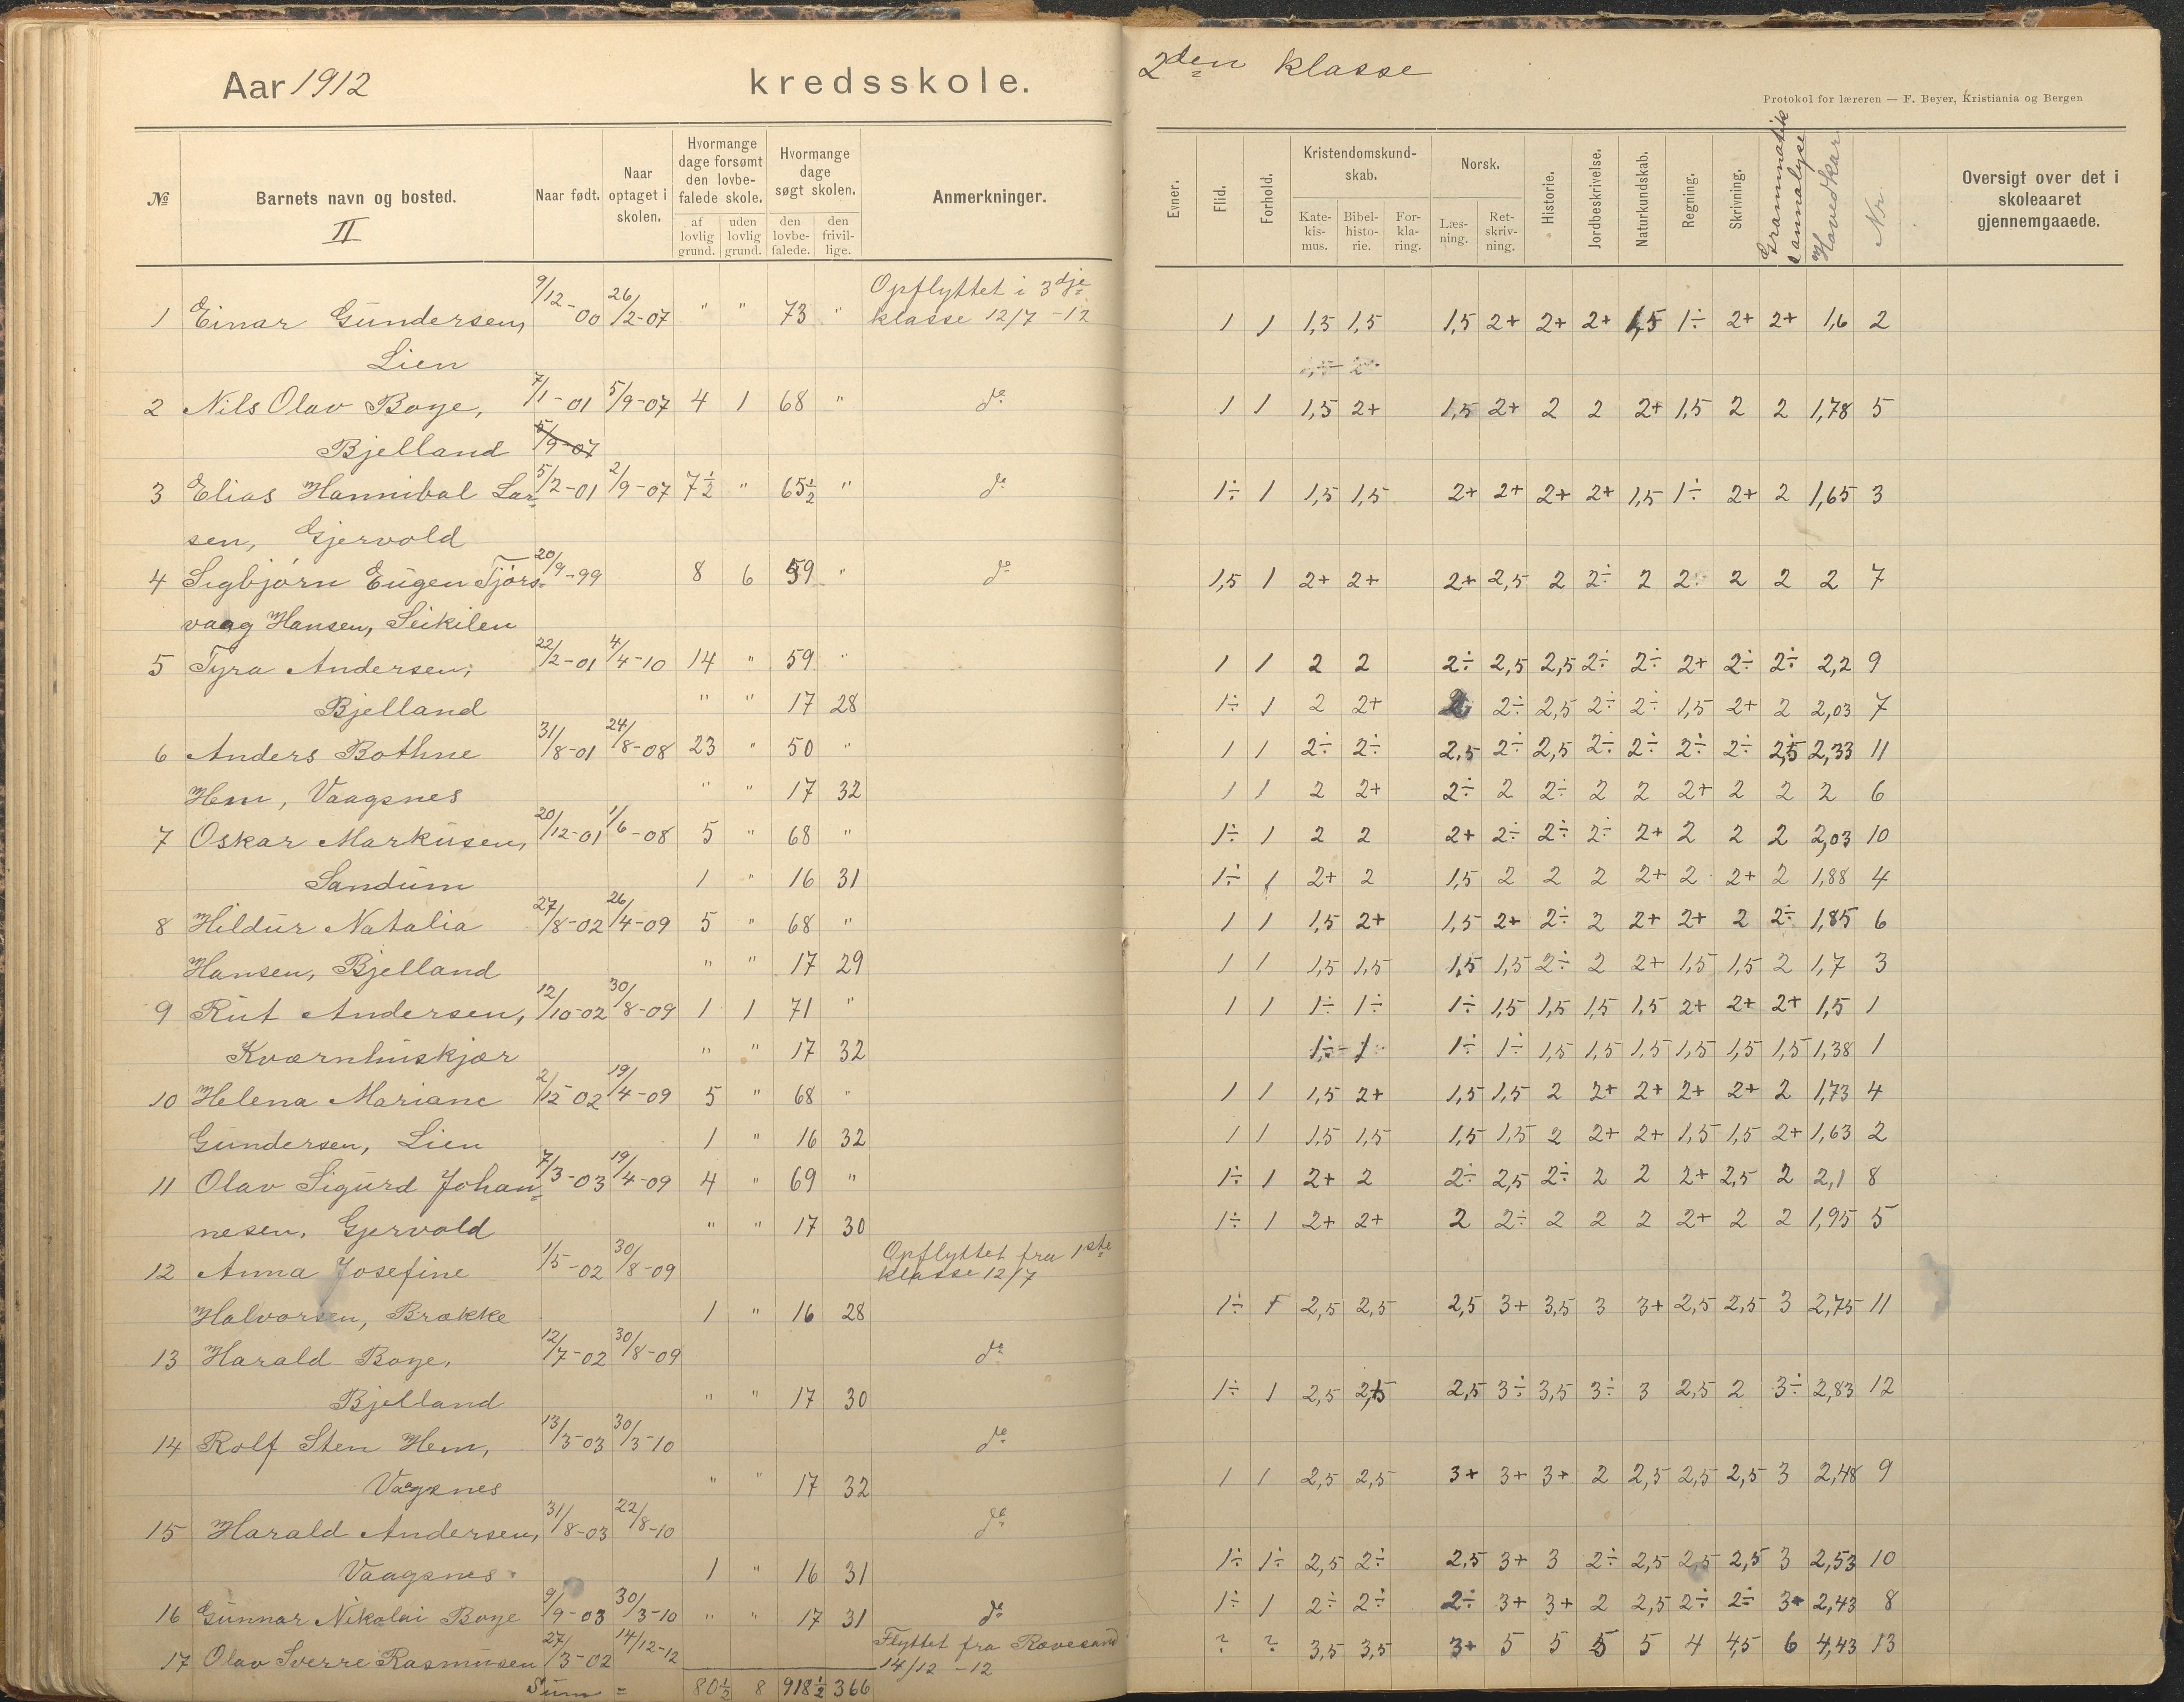 Aar 1912 kredsskole.
№ Barnets navn og bosted. Naar født. Naar optaget i skolen. Hvormange dage forsømt den lovbefalede skole. Hvormange dage søgt skolen. Anmerkninger.
II af lovlig grund. uden lovlig grund. den lovbefalede. den frivillige.
1 Einar Gundersen, 9/12-00 26/2-07 " " 73 " Opflyttet i 3dje klasse 12/7-12
Lien
2 Nils Olav Boye, 7/1-01 5/9-07 4 1 68 " do
Bjelland 5/9-07
3 Elias Hannibal Lar- 5/2-01 2/9-07 7½ " 65½ " do
sen, Gjervold
4 Sigbjørn Eugen Tjørs- 20/9-99 8 6 59 " do
vaag Hansen, Seikilen
5 Tyra Andersen, 22/2-01 4/4-10 14 " 59 "
Bjelland " " 17 28
6 Anders Bothne 31/8-01 24/8-08 23 " 50 "
Hem, Vaagsnes " " 17 32
7 Oskar Markusen, 20/12-01 1/6-08 5 " 68 "
Sandum 1 " 16 31
8 Hildur Natalia 27/8-02 26/4-09 5 " 68 "
Hansen, Bjelland " " 17 29
9 Rut Andersen, 12/10-02 30/8-09 1 1 71 "
Kværnhuskjær " " 17 32
10 Helena Mariane 2/12-02 19/4-09 5 " 68 "
Gundersen, Lien 1 " 16 32
11 Olav Sigurd Johan- 7/3-03 19/4-09 4 " 69 "
nesen, Gjervold " " 17 30
12 Anna Josefine 1/5-02 30/8-09 Opflyttet fra 1ste klasse 12/7
Halvorsen, Brække 1 " 16 28
13 Harald Boye, 12/7-02 30/8-09 do
Bjelland " " 17 30
14 Rolf Sten Hem, 13/3-03 30/3-10 do
Vagsnes " " 17 32
15 Harald Andersen, 31/8-03 22/8-10 do
Vaagsnes 1 " 16 31
16 Gunnar Nikolai Boye 9/9-03 30/3-10 " " 17 31 do
17 Olav Sverre Rasmusen 27/3-02 14/12-12 Flyttet fra Rævesand 14/12-12
Sum = 80½ 8 918½ 366
2den klasse
Protokol for læreren — F. Beyer, Kristiania og Bergen
Evner. Flid. Forhold. Kristendomskundskab. Norsk. Historie. Jordbeskrivelse. Naturkundskab. Regning. Skrivning. Grammatik s analyse Hovedkar. Nr. Oversigt over det i skoleaaret gjennemgaaede.
Katekismus. Bibelhistorie. Forklaring. Læsning. Retskrivning.
1 1 1,5 1,5 1,5 2+ 2+ 2+ 1,5 1÷ 2+ 2+ 1,6 2
1 1 1,5 2+ 1,5 2+ 2 2 2+ 1,5 2 2 1,78 5
1÷ 1 1,5 1,5 2+ 2+ 2+ 2+ 1,5 1÷ 2+ 2 1,65 3
1,5 1 2+ 2+ 2+ 2,5 2 2÷ 2 2÷ 2 2 2 7
1 1 2 2 2÷ 2,5 2,5 2÷ 2÷ 2+ 2÷ 2÷ 2,2 9
1÷ 1 2 2+ 2 2÷ 2,5 2÷ 2÷ 1,5 2+ 2 2,03 7
1 1 2÷ 2÷ 2,5 2÷ 2,5 2÷ 2÷ 2÷ 2÷ 2,5 2,33 11
1 1 2 2+ 2÷ 2 2÷ 2 2 2+ 2 2 2 6
1÷ 1 2 2 2+ 2÷ 2÷ 2÷ 2+ 2 2 2 2,03 10
1÷ 1 2+ 2 1,5 2 2 2 2+ 2 2+ 2 1,88 4
1 1 1,5 2+ 1,5 2+ 2÷ 2 2+ 2+ 2 2÷ 1,85 6
1 1 1,5 1,5 1,5 1,5 2÷ 2 2+ 1,5 1,5 2 1,7 3
1 1 1÷ 1÷ 1÷ 1,5 1,5 1,5 1,5 2+ 2+ 2+ 1,5 1
1÷ 1 1÷ 1÷ 1,5 1,5 1,5 1,5 1,5 1,5 1,38 1
1 1 1,5 2+ 1,5 1,5 2 2+ 2+ 2+ 2+ 2 1,73 4
1 1 1,5 1,5 1,5 1,5 2 2+ 2+ 1,5 1,5 2+ 1,63 2
1÷ 1 2+ 2 2÷ 2,5 2÷ 2 2 2+ 2,5 2 2,1 8
1÷ 1 2+ 2+ 2 2÷ 2 2 2 2+ 2 2 1,95 5
1÷ 1 2,5 2,5 2,5 3+ 3,5 3 3+ 2,5 2,5 3 2,75 11
1÷ 1 2,5 2,5 2,5 3÷ 3,5 3÷ 3 2,5 2 3÷ 2,83 12
1 1 2,5 2,5 3+ 3+ 3+ 2 2,5 2,5 2,5 3 2,48 9
1÷ 1÷ 2,5 2÷ 2,5 3+ 3 2÷ 2,5 2,5 2,5 3 2,53 10
1÷ 1 2÷ 2÷ 2÷ 3+ 3+ 2 2,5 2÷ 2÷ 3+ 2,43 8
? ? 3,5 3,5 3+ 5 5 5 5 4 4,5 6 4,43 13